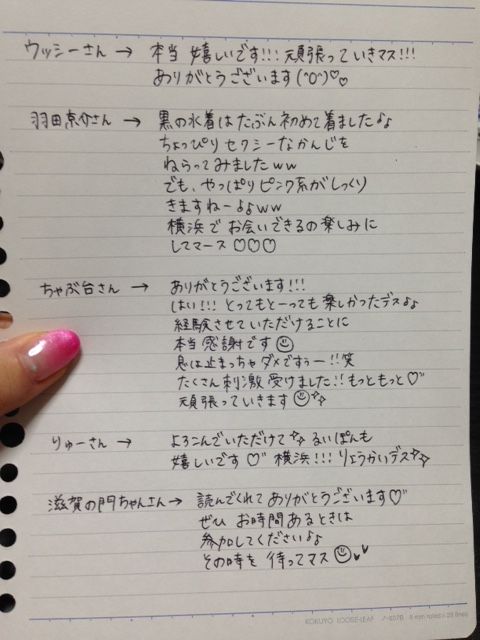 ウッシーさん → 本当 嬉しいです!!! 頑張っていきマス!!!
ありがとうございます(^O^)♡♡
羽田京介さん → 黒の水着はたぶん初めて着ましたよよ
ちょっぴりセクシーなかんじを
ねらってみましたww
でも、やっぱりピンク系がしっくり
きますねーよよww
横浜で お会いできるの楽しみに
してマース♡♡♡
ちゃぶ台さん → ありがとうございます!!!
はい!!! とってもとーっても楽しかったデスよよ
経験させていただけることに
本当 感謝です☺
息は止まっちゃダメですぅー!!笑
たくさん刺激受けました!!もっともっと♡
頑張っていきます☺☆☆
りゅーさん → よろこんでいただけて☆☆ るいぽんも
嬉しいです♡ 横浜!!! りょうかいデス☆☆
滋賀の門ちゃんさん → 読んでくれて ありがとうございます♡
ぜひ お時間あるときは
参加してくださいよよ
その時を 待ってマス☺♥♥
KOKUYO LOOSE-LEAF